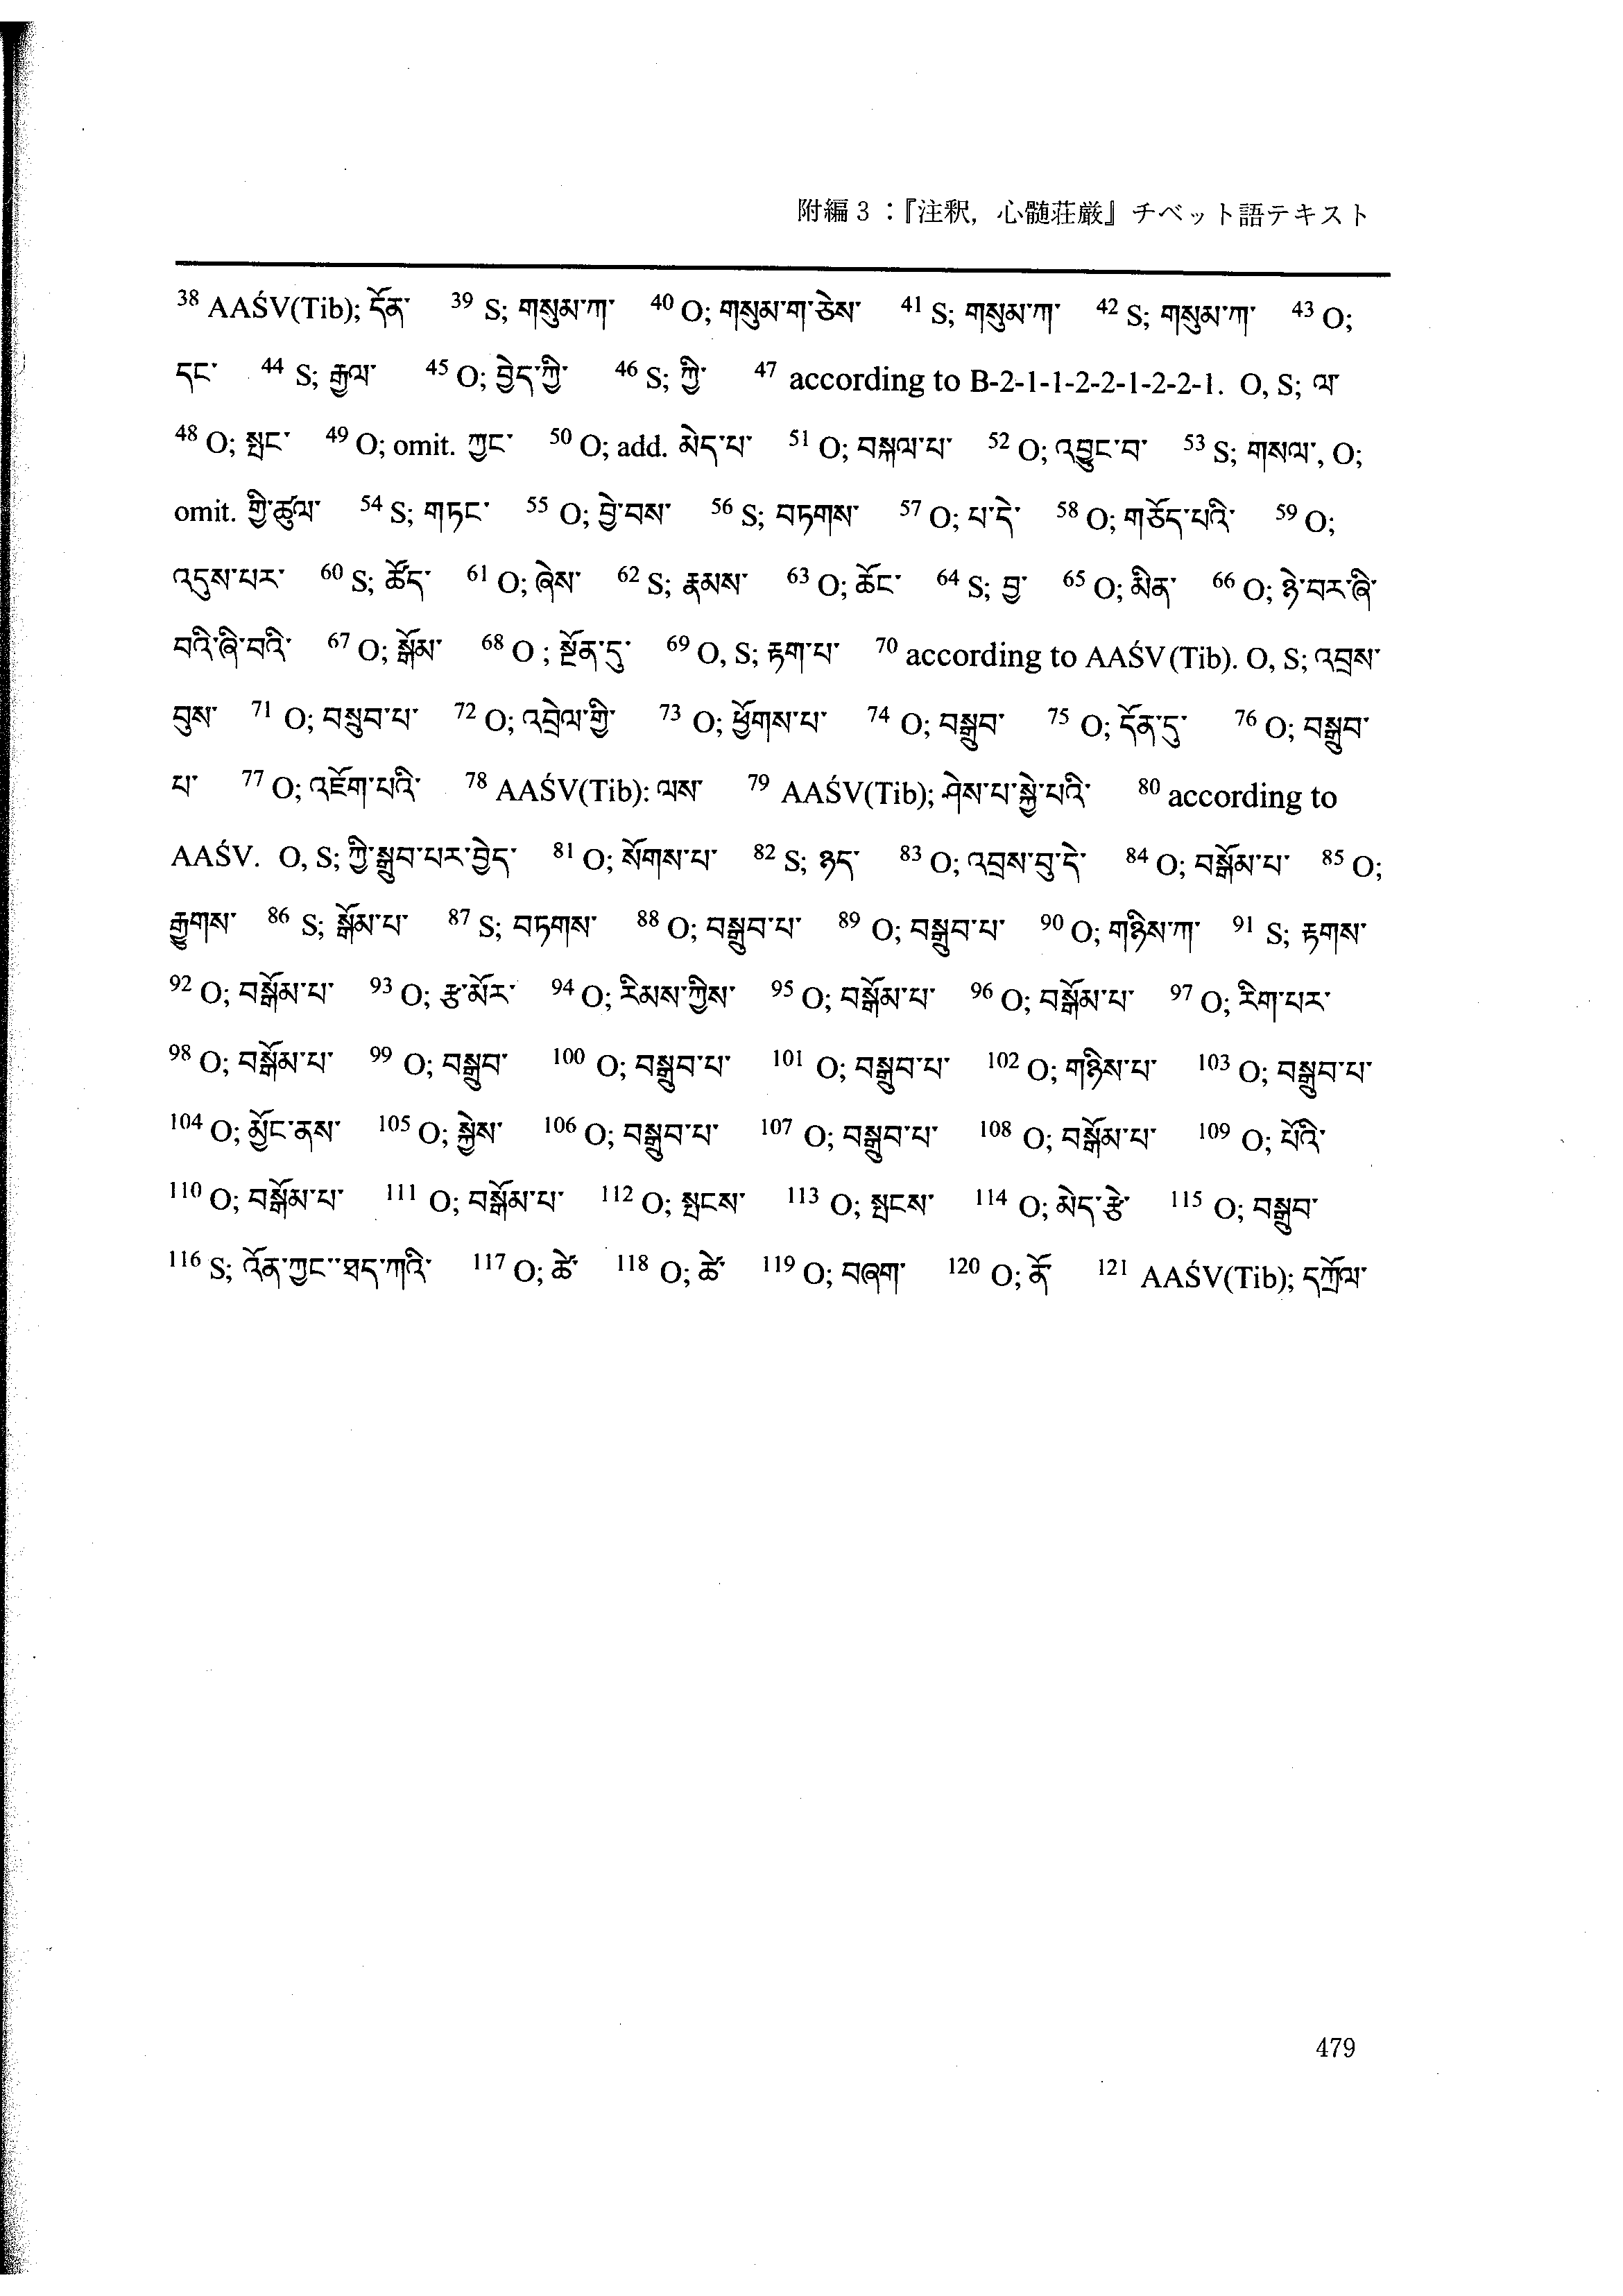 附編3：『注釈，心髄荘厳』チベット語テキスト
38 AAŚV(Tib); དོན་ 39 S; གསུམ་ཀ་ 40 O; གསུམ་ག་ཅེས་ 41 S; གསུམ་ཀ་ 42 S; གསུམ་ཀ་ 43 O;
དང་ 44 S; རྒྱལ་ 45 O; བྱེད་ཀྱི་ 46 S; ཀྱི་ 47 according to B-2-1-1-2-2-1-2-2-1. O, S; ལ་
48 O; སྤང་ 49 O; omit. ཀྱང་ 50 O; add. མེད་པ་ 51 O; བསྐལ་པ་ 52 O; འབྱུང་བ་ 53 S; གསལ་, O;
omit. གྱི་ཚུལ་ 54 S; གཏང་ 55 O; བྱེ་བས་ 56 S; བཏགས་ 57 O; པ་དེ་ 58 O; གཅོད་པའི་ 59 O;
འདུས་པར་ 60 S; ཚོད་ 61 O; ཞེས་ 62 S; རྣམས་ 63 O; ཚོང་ 64 S; བྱ་ 65 O; མིན་ 66 O; ཉེ་བར་ཞི་
བའི་ཞི་བའི་ 67 O; སྒོམ་ 68 O ; སྔོན་དུ་ 69 O, S; རྟག་པ་ 70 according to AAŚV(Tib). O, S; འབྲས་
བུས་ 71 O; བསྲུབ་པ་ 72 O; འབྲེལ་གྱི་ 73 O; ཕྱོགས་པ་ 74 O; བསྒྲུབ་ 75 O; དོན་དུ་ 76 O; བསྒྲུབ་
པ་ 77 O; འཇོག་པའི་ 78 AAŚV(Tib): ལས་ 79 AAŚV(Tib); ཤེས་པ་སྐྱེ་པའི་ 80 according to
AAŚV. O, S; ཀྱི་སྒྲུབ་པར་བྱེད་ 81 O; སོགས་པ་ 82 S; ཉད་ 83 O; འབྲས་བུ་དེ་ 84 O; བསྒོམ་པ་ 85 O;
རྒྱུགས་ 86 S; སྒོམ་པ་ 87 S; བཏགས་ 88 O; བསྒྲུབ་པ་ 89 O; བསྒྲུབ་པ་ 90 O; གཉིས་ཀ་ 91 S; རྟགས་
92 O; བསྒོམ་པ་ 93 O; རྩ་མོར་ 94 O; རིམས་ཀྱིས་ 95 O; བསྒོམ་པ་ 96 O; བསྒོམ་པ་ 97 O; རིག་པར་
98 O; བསྒོམ་པ་ 99 O; བསྒྲུབ་ 100 O; བསྒྲུབ་པ་ 101 O; བསྒྲུབ་པ་ 102 O; གཉིས་པ་ 103 O; བསྒྲུབ་པ་
104 O; མྱོང་ནས་ 105 O; སྐྱེས་ 106 O; བསྒྲུབ་པ་ 107 O; བསྒྲུབ་པ་ 108 O; བསྒོམ་པ་ 109 O; པོའི་
110 O; བསྒོམ་པ་ 111 O; བསྒོམ་པ་ 112 O; སྤངས་ 113 O; སྤངས་ 114 O; མེད་རྩེ་ 115 O; བསྒྲུབ་
116 S; འོན་ཀྱང་་ཐད་ཀའི་ 117 O; ཚེ་ 118 O; ཚེ་ 119 O; བཞག་ 120 O; ནོ་ 121 AAŚV(Tib); དཀྲོལ་
479